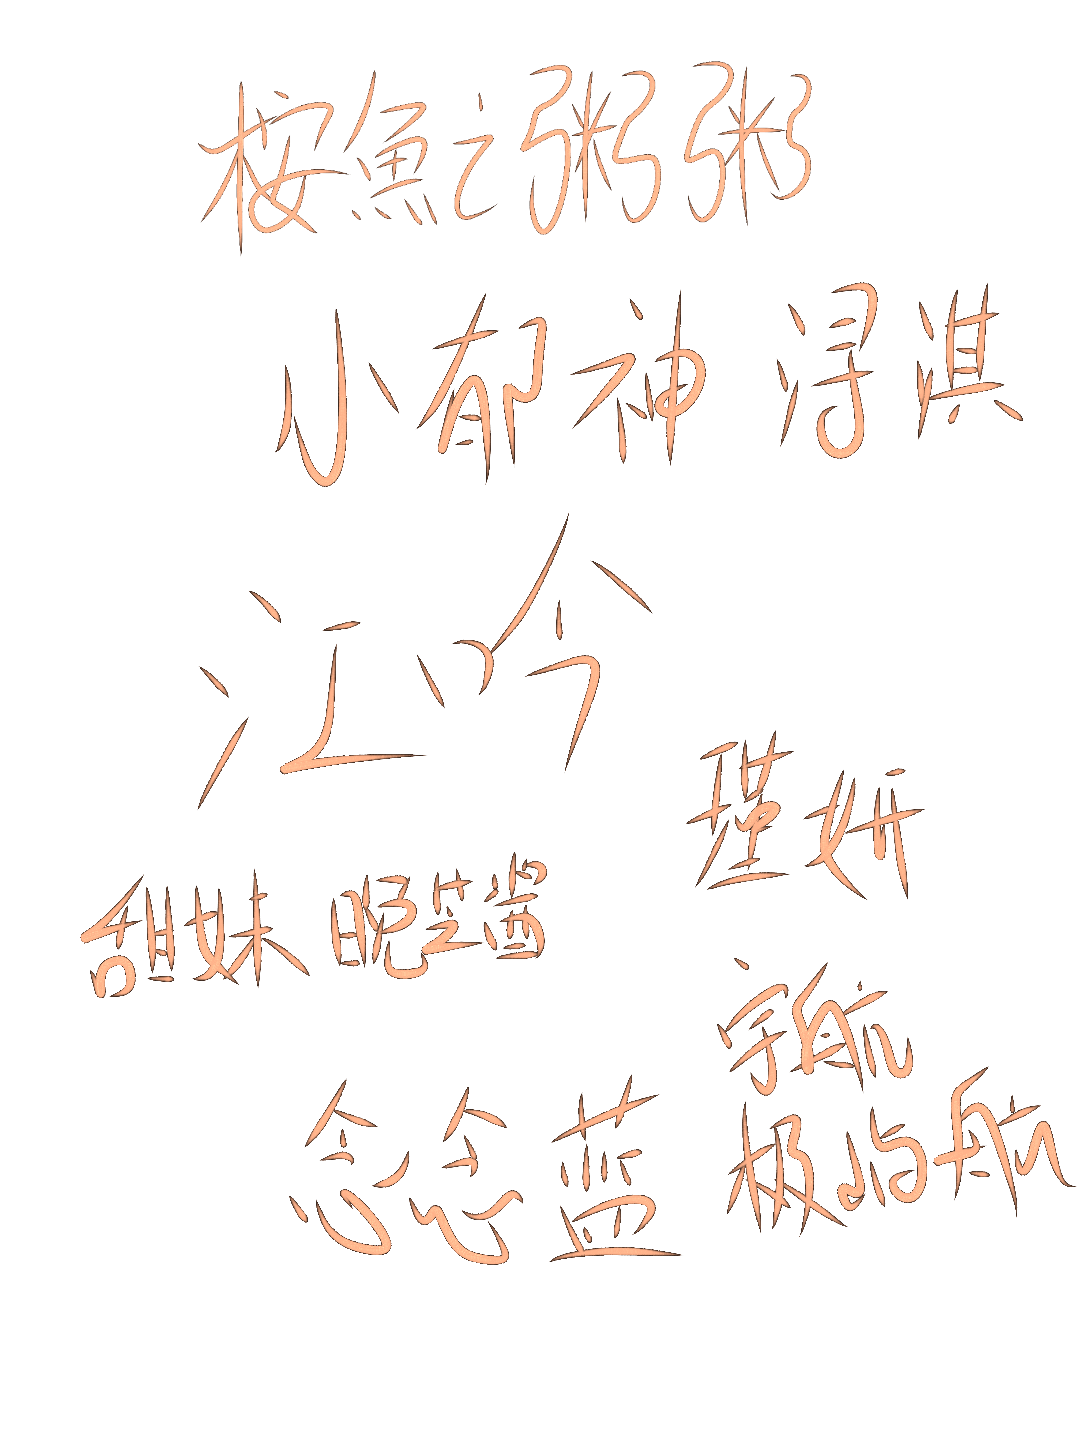 桉魚之粥粥
小郁神 浔淇
江吟
瑾妍
甜妹 晚芝
宇航
念念 蓝
极 航